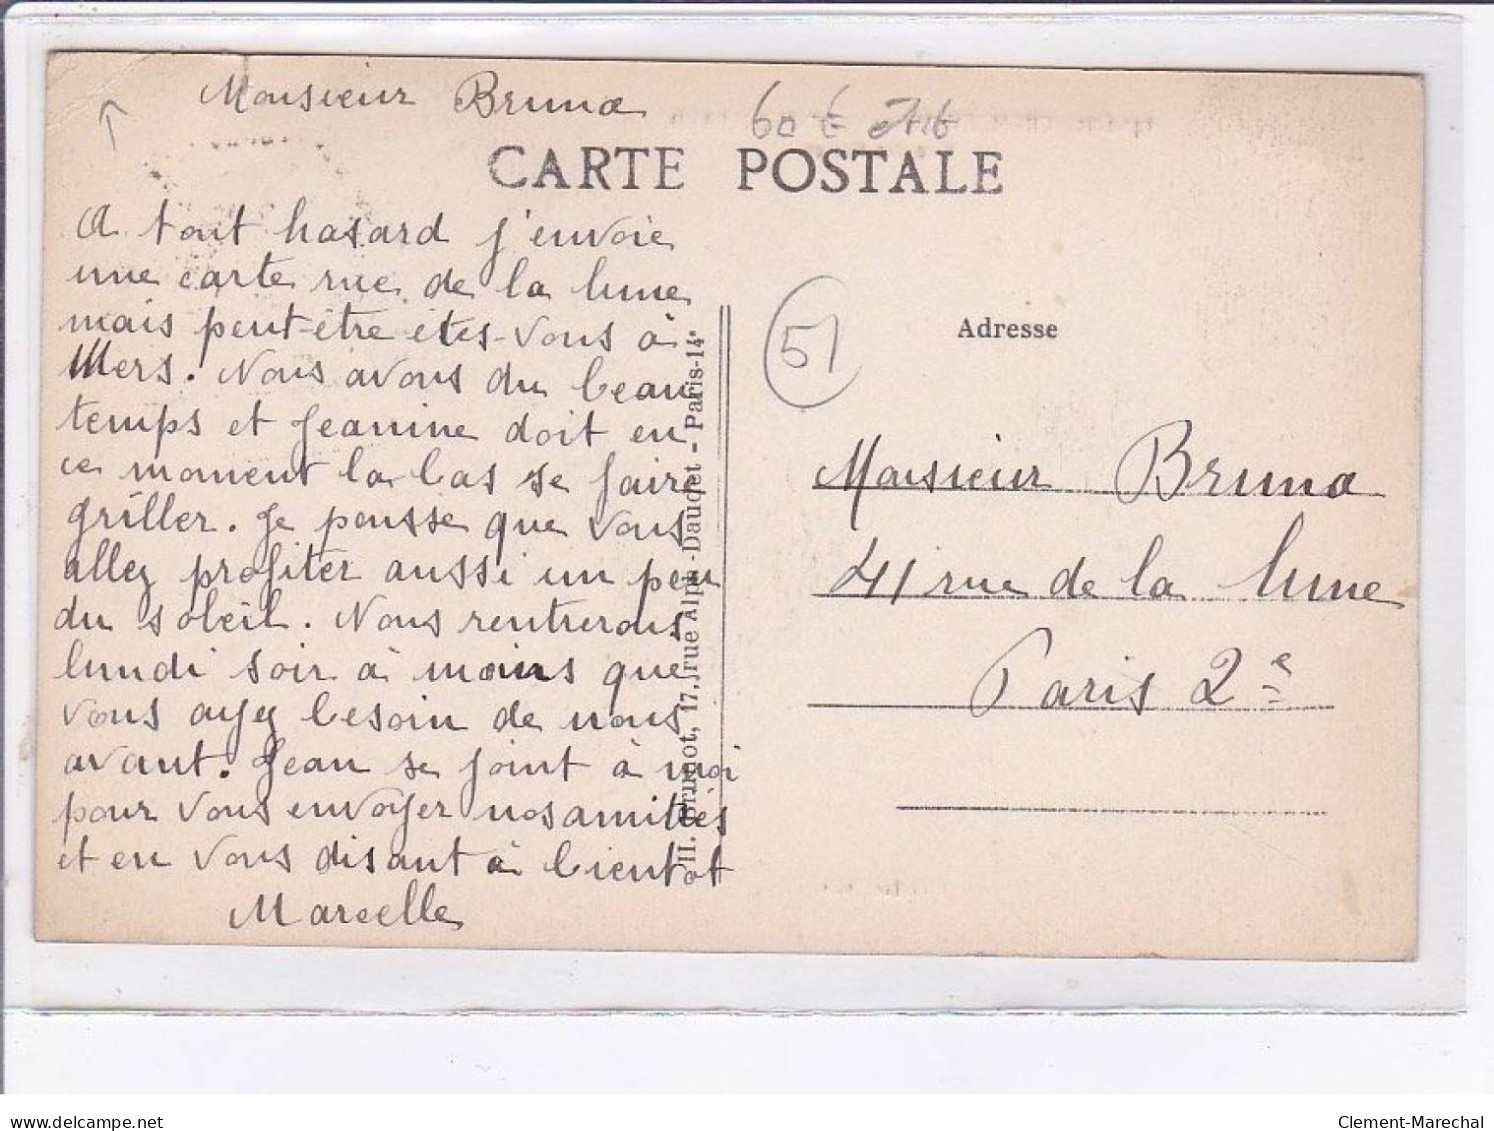 Monsieur Bruno
60 €
CARTE POSTALE
A tout hasard j'envoie
une carte rue de la lune
mais peut-être êtes-vous à
Mers. Nous avons du beau
temps et Jeanine doit en
ce moment la bas se faire
griller. Je pense que vous
allez profiter aussi un peu
du soleil. Nous rentrerons
lundi soir à moins que
vous ayez besoin de nous
avant. Jean se joint à moi
pour vous envoyer nos amitiés
et en vous disant à bientôt
Marcelle
H. Brunot, 17, rue Alph-Daudet - Paris-14e
51
Adresse
Monsieur Bruno
41 rue de la lune
Paris 2e
delcampe.net
Clement-Marechal